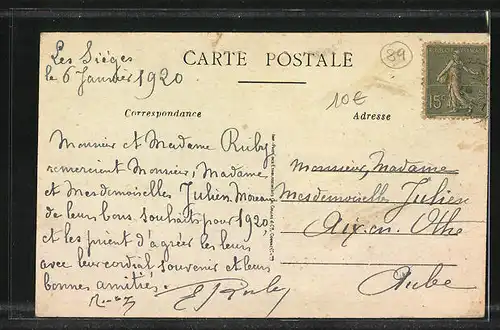 Les Sièges
le 6 Janvier 1920
CARTE POSTALE
89
10€
15c
Correspondance
Adresse
Monsieur et Madame Ruby
remercient Monsieur, Madame,
et Mesdemoiselles Julien Moreau
de leurs bons souhaits pour 1920
et les prient d'agréer les leurs
avec leur cordial souvenir et leurs
bonnes amitiés.
E Ruby
Monsieur, Madame
Mesdemoiselles Julien
Aix-en-Othe
Aube